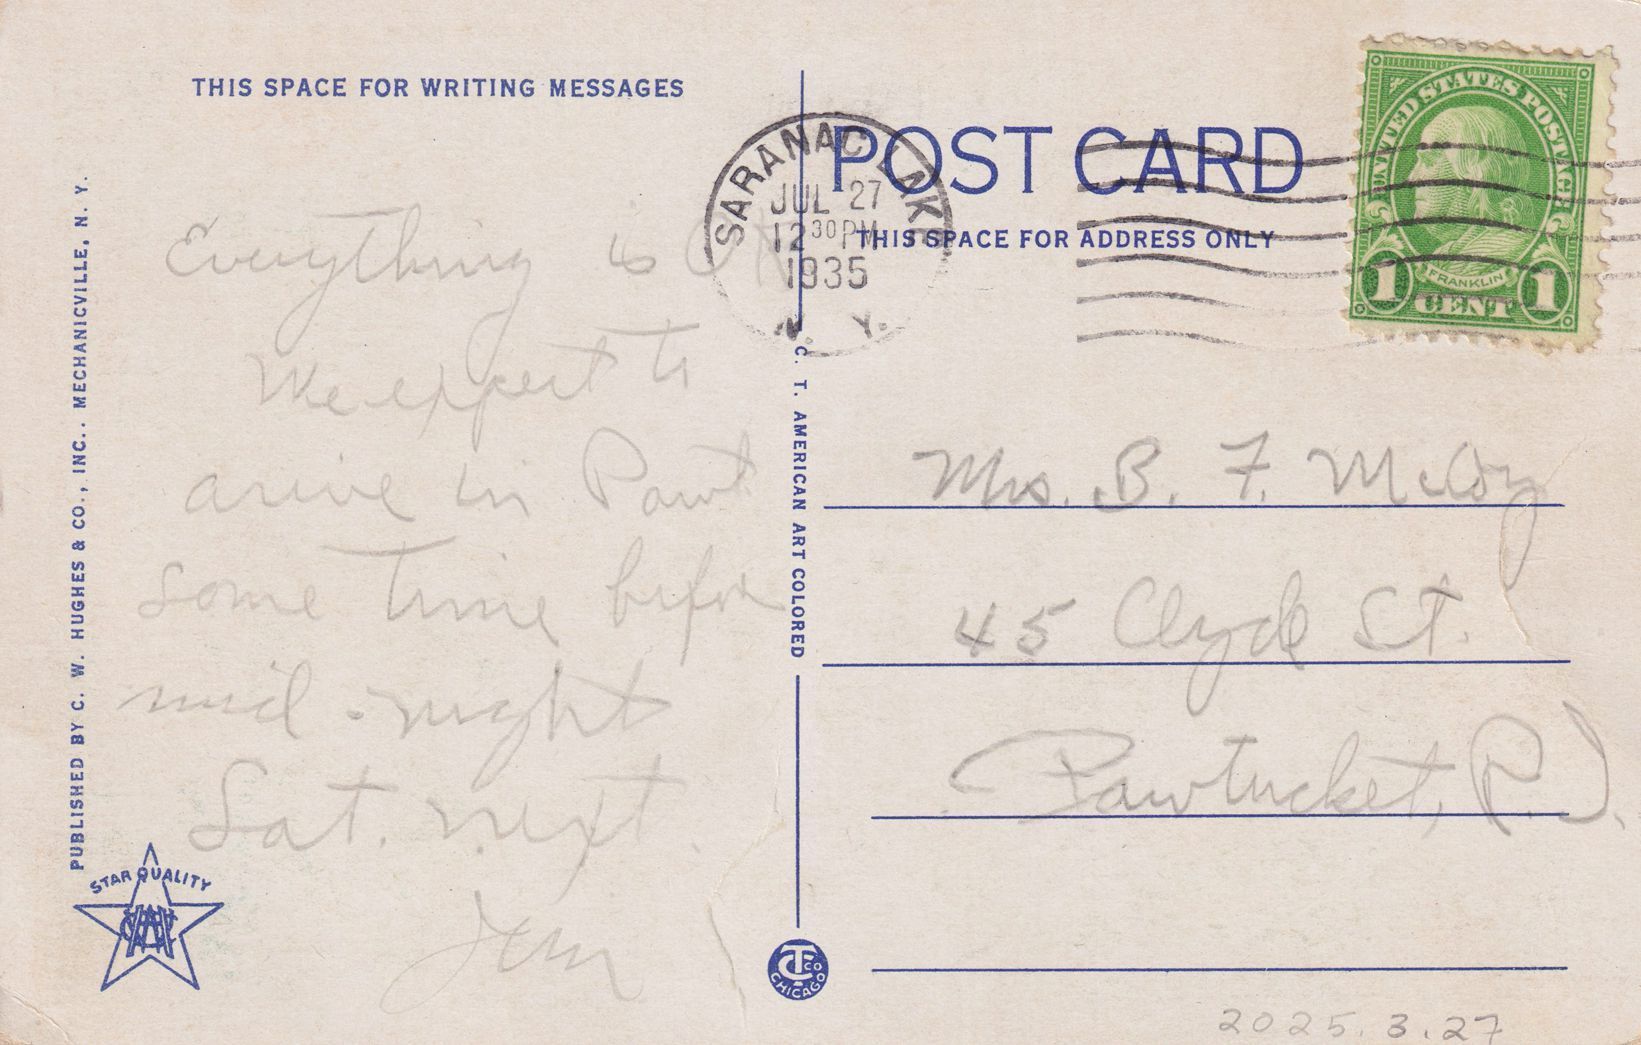 THIS SPACE FOR WRITING MESSAGES
Everything is OK
We expect to
arive in Pawt
some time before
mid-night
Sat. next.
PUBLISHED BY C. W. HUGHES & CO., INC., MECHANICVILLE, N. Y.
STAR QUALITY
C. T. AMERICAN ART COLORED
CT CO
CHICAGO
POST CARD
THIS SPACE FOR ADDRESS ONLY
SARANAC LAKE
JUL 27
12 30 PM
1935
N. Y.
UNITED STATES POSTAGE
FRANKLIN
1 CENT 1
Mrs. B. F. McCoy
45 Clyde St.
Pawtucket, R. I.
2025.3.27